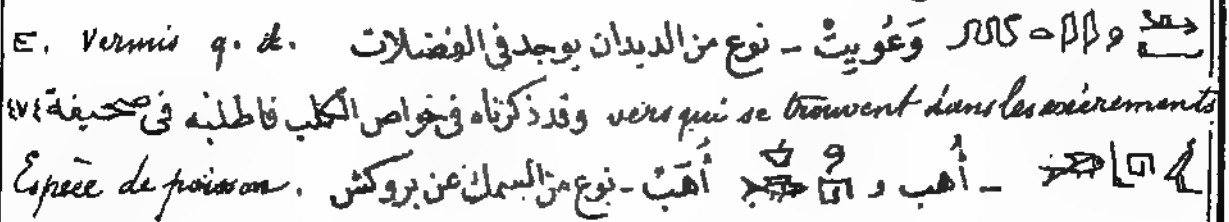 وَعُوبِيتْ - نوع من الديدان يوجد في الفضلات E. Vermis q. d.
vers qui se trouvent dans les excréments وقد ذكرناه في خواص الكلب فاطلبه في صحيفة ٤٧٤
- أُهب و أُهَبْ - نوع من السمك عن بروكش Espèce de poisson.